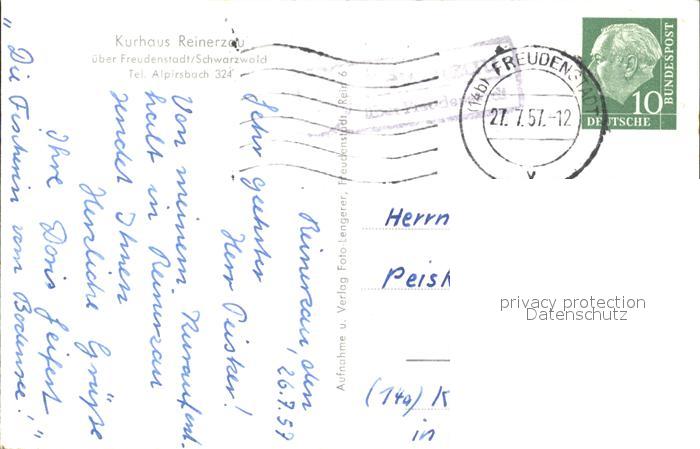 Kurhaus Reinerzau
über Freudenstadt/Schwarzwald
Tel. Alpirsbach 324
Reinerzau, den
26.7.57
Sehr geehrter
Herr Peisker!
Von meinem Kuraufent-
halt in Reinerzau
sendet Ihnen
Herzliche Grüße
Ihre Doris Seifert
"Die Fischerin vom Bodensee!"
Aufnahme u. Verlag Foto-Lengerer, Freudenstadt
(14b) FREUDENSTADT
27.7.57.-12
10
DEUTSCHE
BUNDESPOST
Herrn
Peisk
(14a) K
in
privacy protection
Datenschutz